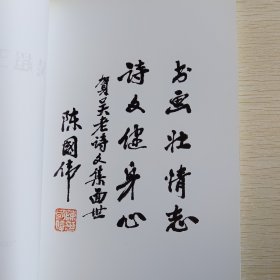 书画壮情志
诗文健身心
贺吴老诗文集面世
陈国伟